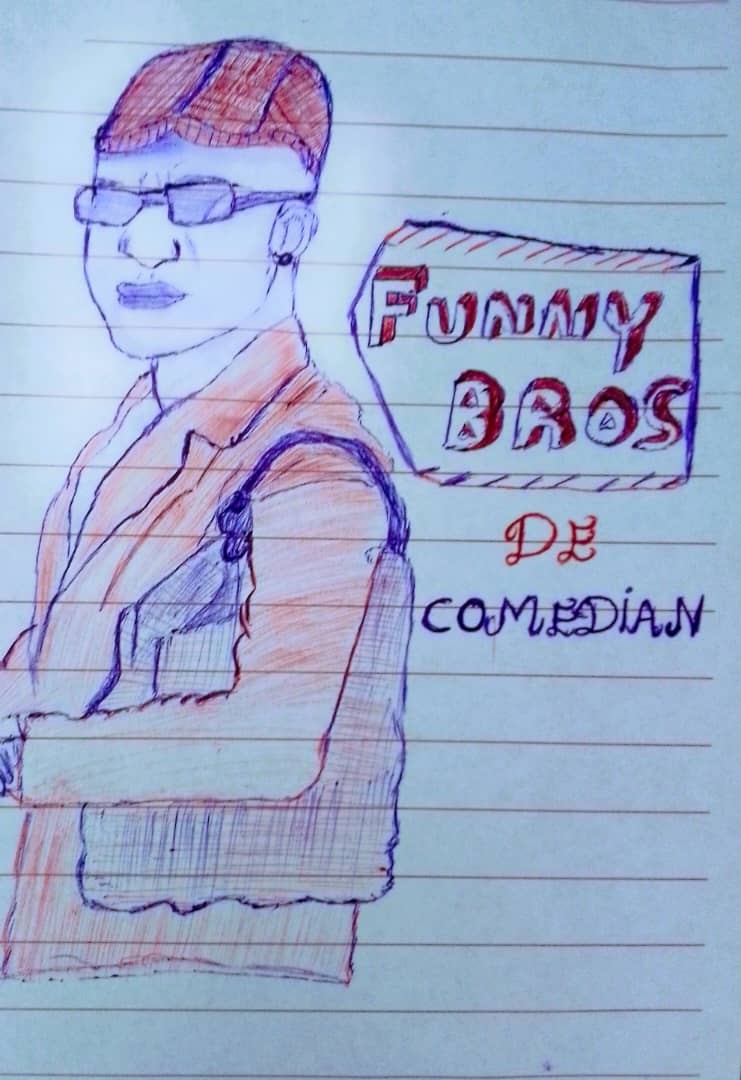 FUNNY
BROS
DE
COMEDiAN